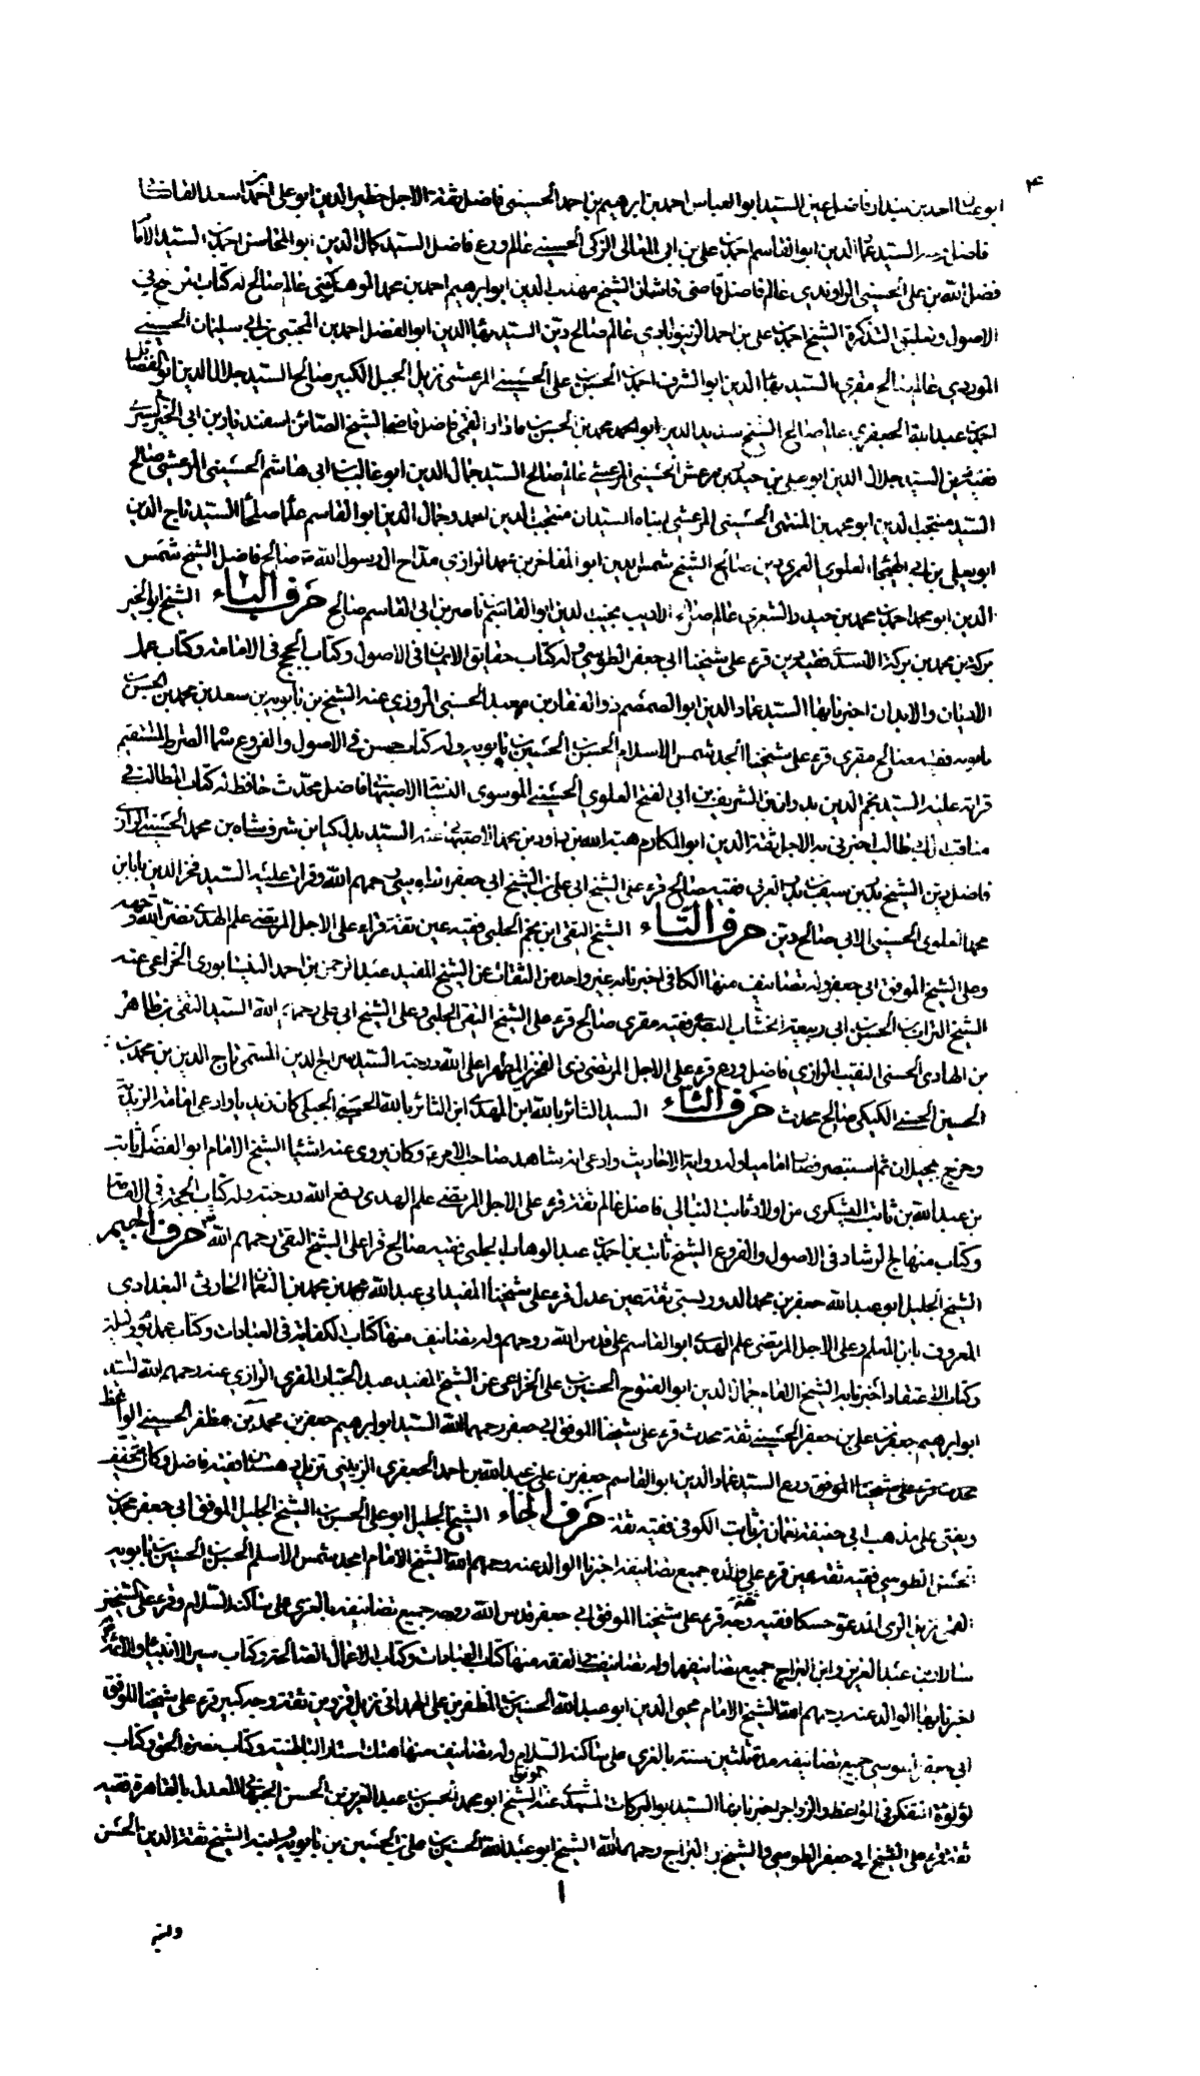 ۴
فاضل السيد عماد الدين ابو القاسم احمد بن علي بن ابي المعالي الزكي الحسيني عالم ورع فاضل السيد كمال الدين ابو المحاسن احمد بن السيد الامام
فضل الله بن علي الحسيني الراوندي عالم فاضل قاضي قاشان الشيخ مهذب الدين ابو ابراهيم احمد بن محمد الوهركيني عالم صالح له كتاب في
الاصول وتعليق التذكرة الشيخ احمد بن علي بن احمد الزينوابادي عالم صالح دين السيد بهاء الدين ابو الفضل احمد بن المجتبى بن ابي سليمان الحسيني
الموردي عالم صالح مقري السيد بهاء الدين ابو الشرف احمد بن الحسين بن علي الحسيني المرعشي نزيل الجبل الكبير صالح السيد جلال الدين ابو الفضائل
احمد بن عبد الله الجعفري عالم صالح الشيخ سديد الدين ابو محمد بن الحسين القمي فاضل الشيخ الصائن اسفنديار بن ابي الخير
فقيه دين السيد جلال الدين ابو علي بن حيدر بن مرعش الحسيني المرعشي عالم صالح السيد جمال الدين ابو غالب بن ابي هاشم الحسيني المرعشي صالح
السيد منتجب الدين ابو محمد بن المنتهى الحسيني المرعشي ابناه السيدان منتجب الدين احمد وجمال الدين ابو القاسم علما صلحا السيد تاج الدين
ابو يعلى بن ابي الهيجاء العلوي العمري دين صالح الشيخ شمس الدين ابو المفاخر بن محمد الرازي مداح ال رسول الله ص صالح فاضل الشيخ شمس
الدين ابو محمد احمد بن محمد بن حيدر الشعري عالم صالح الاديب نجيب الدين ابو القاسم ناصر بن ابي القاسم صالح حرف الباء الشيخ ابو الخير
بركة بن محمد بن بركة الاسدي فقيه دين قرء على شيخنا ابي جعفر الطوسي وله كتاب حقايق الايمان في الاصول وكتاب الحجج في الامامة وكتاب عمل
الاديان والابدان اخبرنا بها السيد عماد الدين ابو الصمصام ذو الفقار بن معبد الحسني المروزي عنه الشيخ بن بابويه بن سعد بن محمد بن الحسن
بابويه فقيه صالح مقري قرء على شيخنا الجد شمس الاسلام الحسن بن الحسين بن بابويه وله كتاب حسن في الاصول والفروع سماه الصراط المستقيم
قراته عليه السيد نجم الدين بدران بن الشريف بن ابي الفتح العلوي الحسيني الموسوي النسابة الاصبهاني فاضل محدث حافظ له كتاب المطالب في
مناقب ال ابي طالب اخبرني به الاجل ثقة الدين ابو المكارم هبة الله بن داود بن محمد الاصبهاني عنه السيد بدل كيا بن شرفشاه بن محمد الحسيني الرازي
فاضل دين الشيخ بدر بن سيف بن بدر العربي فقيه صالح قرء على الشيخ ابي علي بن الشيخ ابي جعفر الطوسي رحمهم الله وقرات عليه السيد فخر الدين بابا بن
محمد العلوي الحسيني الابي صالح دين حرف التاء الشيخ التقي ابن نجم الحلبي فقيه عين ثقة قرء على الاجل المرتضى علم الهدى نضر الله وجهه
وعلى الشيخ الموفق ابي جعفر وله تصانيف منها الكافي اخبرنا به غير واحد من الثقات عن الشيخ المفيد عبد الرحمن بن احمد النيسابوري الخزاعي عنه
الشيخ التواب بن الحسن بن ابي ربيعة الخشاب البصري فقيه مقري صالح قرء على الشيخ التقي الحلبي وعلى الشيخ ابي علي رحمهما الله السيد التقي بن طاهر
بن الهادي الحسني النقيب الرازي فاضل ورع قرء على الاجل المرتضى ذي الفخرين المطهر اعلى الله درجته السيد سراج الدين المسمى تاج الدين بن محمد بن
الحسين الحسني الكيكي صالح محدث حرف الثاء السيد الثائر بالله ابن المهدي ابن الثائر بالله الحسيني الجبلي كان زيديا وادعى امامة الزيدية
وخرج بجيلان ثم استبصر فصار اماميا وله رواية الاحاديث وادعى انه شاهد صاحب الامر ع وكان يروي عنه اشياء الشيخ الامام ابو الفضل ثابت
بن عبد الله بن ثابت اليشكري من اولاد ثابت البناني فاضل عالم ثقة قرء على الاجل المرتضى علم الهدى رفع الله درجته وله كتاب الحجة في الامامة
وكتاب منهاج الرشاد في الاصول والفروع الشيخ ثابت بن احمد بن عبد الوهاب الحلبي فقيه صالح قرا على الشيخ التقي رحمهم الله حرف الجيم
الشيخ الجليل ابو عبد الله جعفر بن محمد الدوريستي ثقة عين عدل قرء على شيخنا المفيد ابي عبد الله محمد بن محمد بن النعمان الحارثي البغدادي
المعروف بابن المعلم وعلى الاجل المرتضى علم الهدى ابو القاسم علي قدس الله روحهم وله تصانيف منها كتاب الكفاية في العبادات وكتاب عمل يوم وليلة
وكتاب الاعتقاد اخبرنا به الشيخ الامام جمال الدين ابو الفتوح الحسين بن علي الخزاعي عن الشيخ المفيد عبد الجبار المقري الرازي عنه رحمهم الله السيد
ابو ابراهيم جعفر بن علي بن جعفر الحسيني ثقة محدث قرء على شيخنا الموفق ابي جعفر رحمهما الله السيد ابو ابراهيم جعفر بن محمد بن مظفر الحسيني الواعظ
محدث قرء على شيخنا الموفق ورع السيد عماد الدين ابو القاسم جعفر بن علي بن عبد الله بن احمد الجعفري الزينبي نزيل دهستان فقيه فاضل وكان يتحنف
ويفتي على مذهب ابي حنيفة نعمان بن ثابت الكوفي فقيه ثقة حرف الحاء الشيخ الجليل ابو علي الحسن بن الشيخ الجليل الموفق ابي جعفر محمد بن
الحسن الطوسي فقيه ثقة عين قرء على والده جميع تصانيفه اخبرنا الوالد عنه رحمهم الله الشيخ الامام الجد شمس الاسلام الحسن بن الحسين بن بابويه
القمي نزيل الري المدعو حسكا فقيه ثقة وجه قرء على شيخنا الموفق ابي جعفر قدس الله روحه جميع تصانيفه بالغري على ساكنه السلام وقرء على الشيخين
سالار بن عبد العزيز وابن البراج جميع تصانيفهما وله تصانيف في الفقه منها كتاب العبادات وكتاب الاعمال الصالحة وكتاب سير الانبياء والائمة
اخبرنا بها الوالد عنه رحمهم الله الشيخ الامام محيي الدين ابو عبد الله الحسين بن المظفر بن علي الهمداني نزيل قزوين ثقة وجه كبير قرء على شيخنا الموفق
ابي جعفر الطوسي جميع تصانيفه مدة ثلثين سنة بالغري على ساكنه السلام وله تصانيف منها هتك استار الباطنية وكتاب نصرة الحق وكتاب
لؤلؤة التفكر في المواعظ والزواجر اخبرنا بها السيد ابو البركات المشهدي عنه الشيخ الموفق ابو محمد الحسن بن عبد العزيز بن الحسن الجبهاني المعدل بالقاهرة فقيه
ثقة قرء على الشيخ ابي جعفر الطوسي والشيخ بن البراج رحمهما الله الشيخ ابو عبد الله الحسين بن علي بن الحسين بن بابويه وابنه الشيخ ثقة الدين الحسن